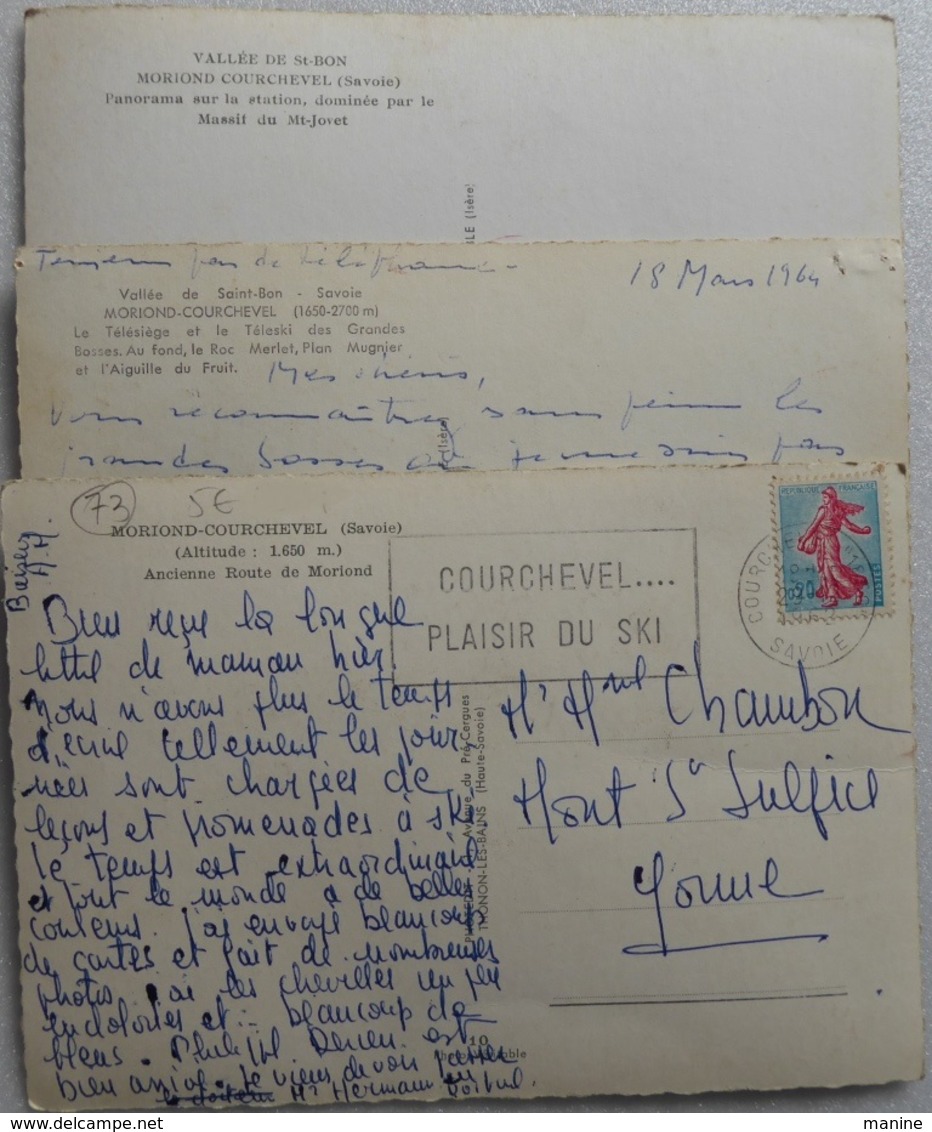 VALLÉE DE St-BON
MORIOND COURCHEVEL (Savoie)
Panorama sur la station, dominée par le
Massif du Mt-Jovet
BLE (Isère)
pas de
18 Mars 1964
Vallée de Saint-Bon - Savoie
MORIOND-COURCHEVEL (1650-2700 m)
Le Télésiège et le Téleski des Grandes
Bosses. Au fond, le Roc Merlet, Plan Mugnier
et l'Aiguille du Fruit.
Mes chéris,
Vous reconnaîtrez sans peine les
grandes bosses où je ne suis pas
(Isère)
73
5€
MORIOND-COURCHEVEL (Savoie)
(Altitude : 1.650 m.)
Ancienne Route de Moriond
Baisers
A.M.
COURCHEVEL....
PLAISIR DU SKI
REPUBLIQUE FRANÇAISE
0,20
POSTES
COURCHEVEL
SAVOIE
Bien reçu la longue
lettre de maman hier.
Nous n'avons plus le temps
d'écrire tellement les jour
nées sont chargées de
leçons et promenades à ski
le temps est extraordinaire
et tout le monde a de belles
couleurs. j'ai envoyé beaucoup
de cartes et fait de nombreuses
photos. j'ai les chevilles un peu
endolories et - beaucoup de
bleus. Philippe est
bien arrivé. Je viens de voir passer
Mr Hermann en
Mr Mme Chambon
Mont St Sulpice
Yonne
Avenue du Pré-Cergues
THONON-LES-BAINS (Haute-Savoie)
10
manine